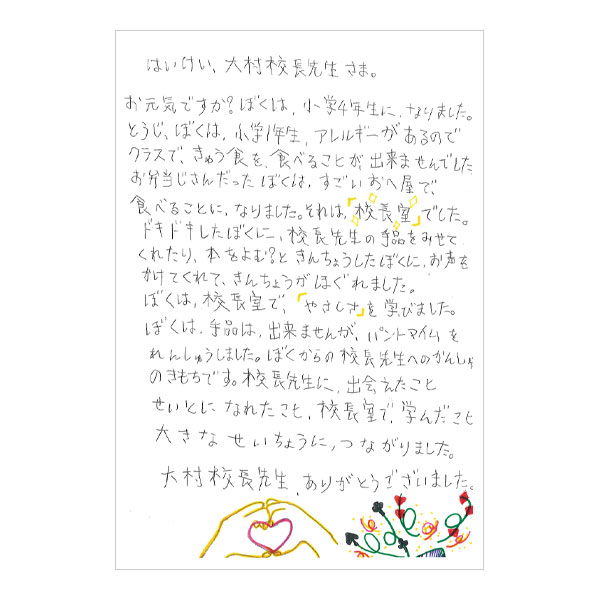 はいけい、大村校長先生さま。
お元気ですか？ぼくは、小学4年生に、なりました。
とうじ、ぼくは、小学1年生、アレルギーがあるので
クラスで、きゅう食を、食べることが、出来ませんでした
お弁当じさんだったぼくは、すごいおへ屋で、
食べることに、なりました。それは、「校長室」でした。
ドキドキしたぼくに、校長先生の手品をみせて
くれたり、本をよむ？ときんちょうしたぼくに、お声を
かけてくれて、きんちょうがほぐれました。
ぼくは、校長室で、「やさしさ」を学びました。
ぼくは、手品は、出来ませんが、パントマイムを
れんしゅうしました。ぼくからの校長先生へのかんしゃ
のきもちです。校長先生に、出会えたこと
せいとになれたことも、校長室で、学んだことも
大きなせいちょうに、つながりました。
大村校長先生、ありがとうございました。